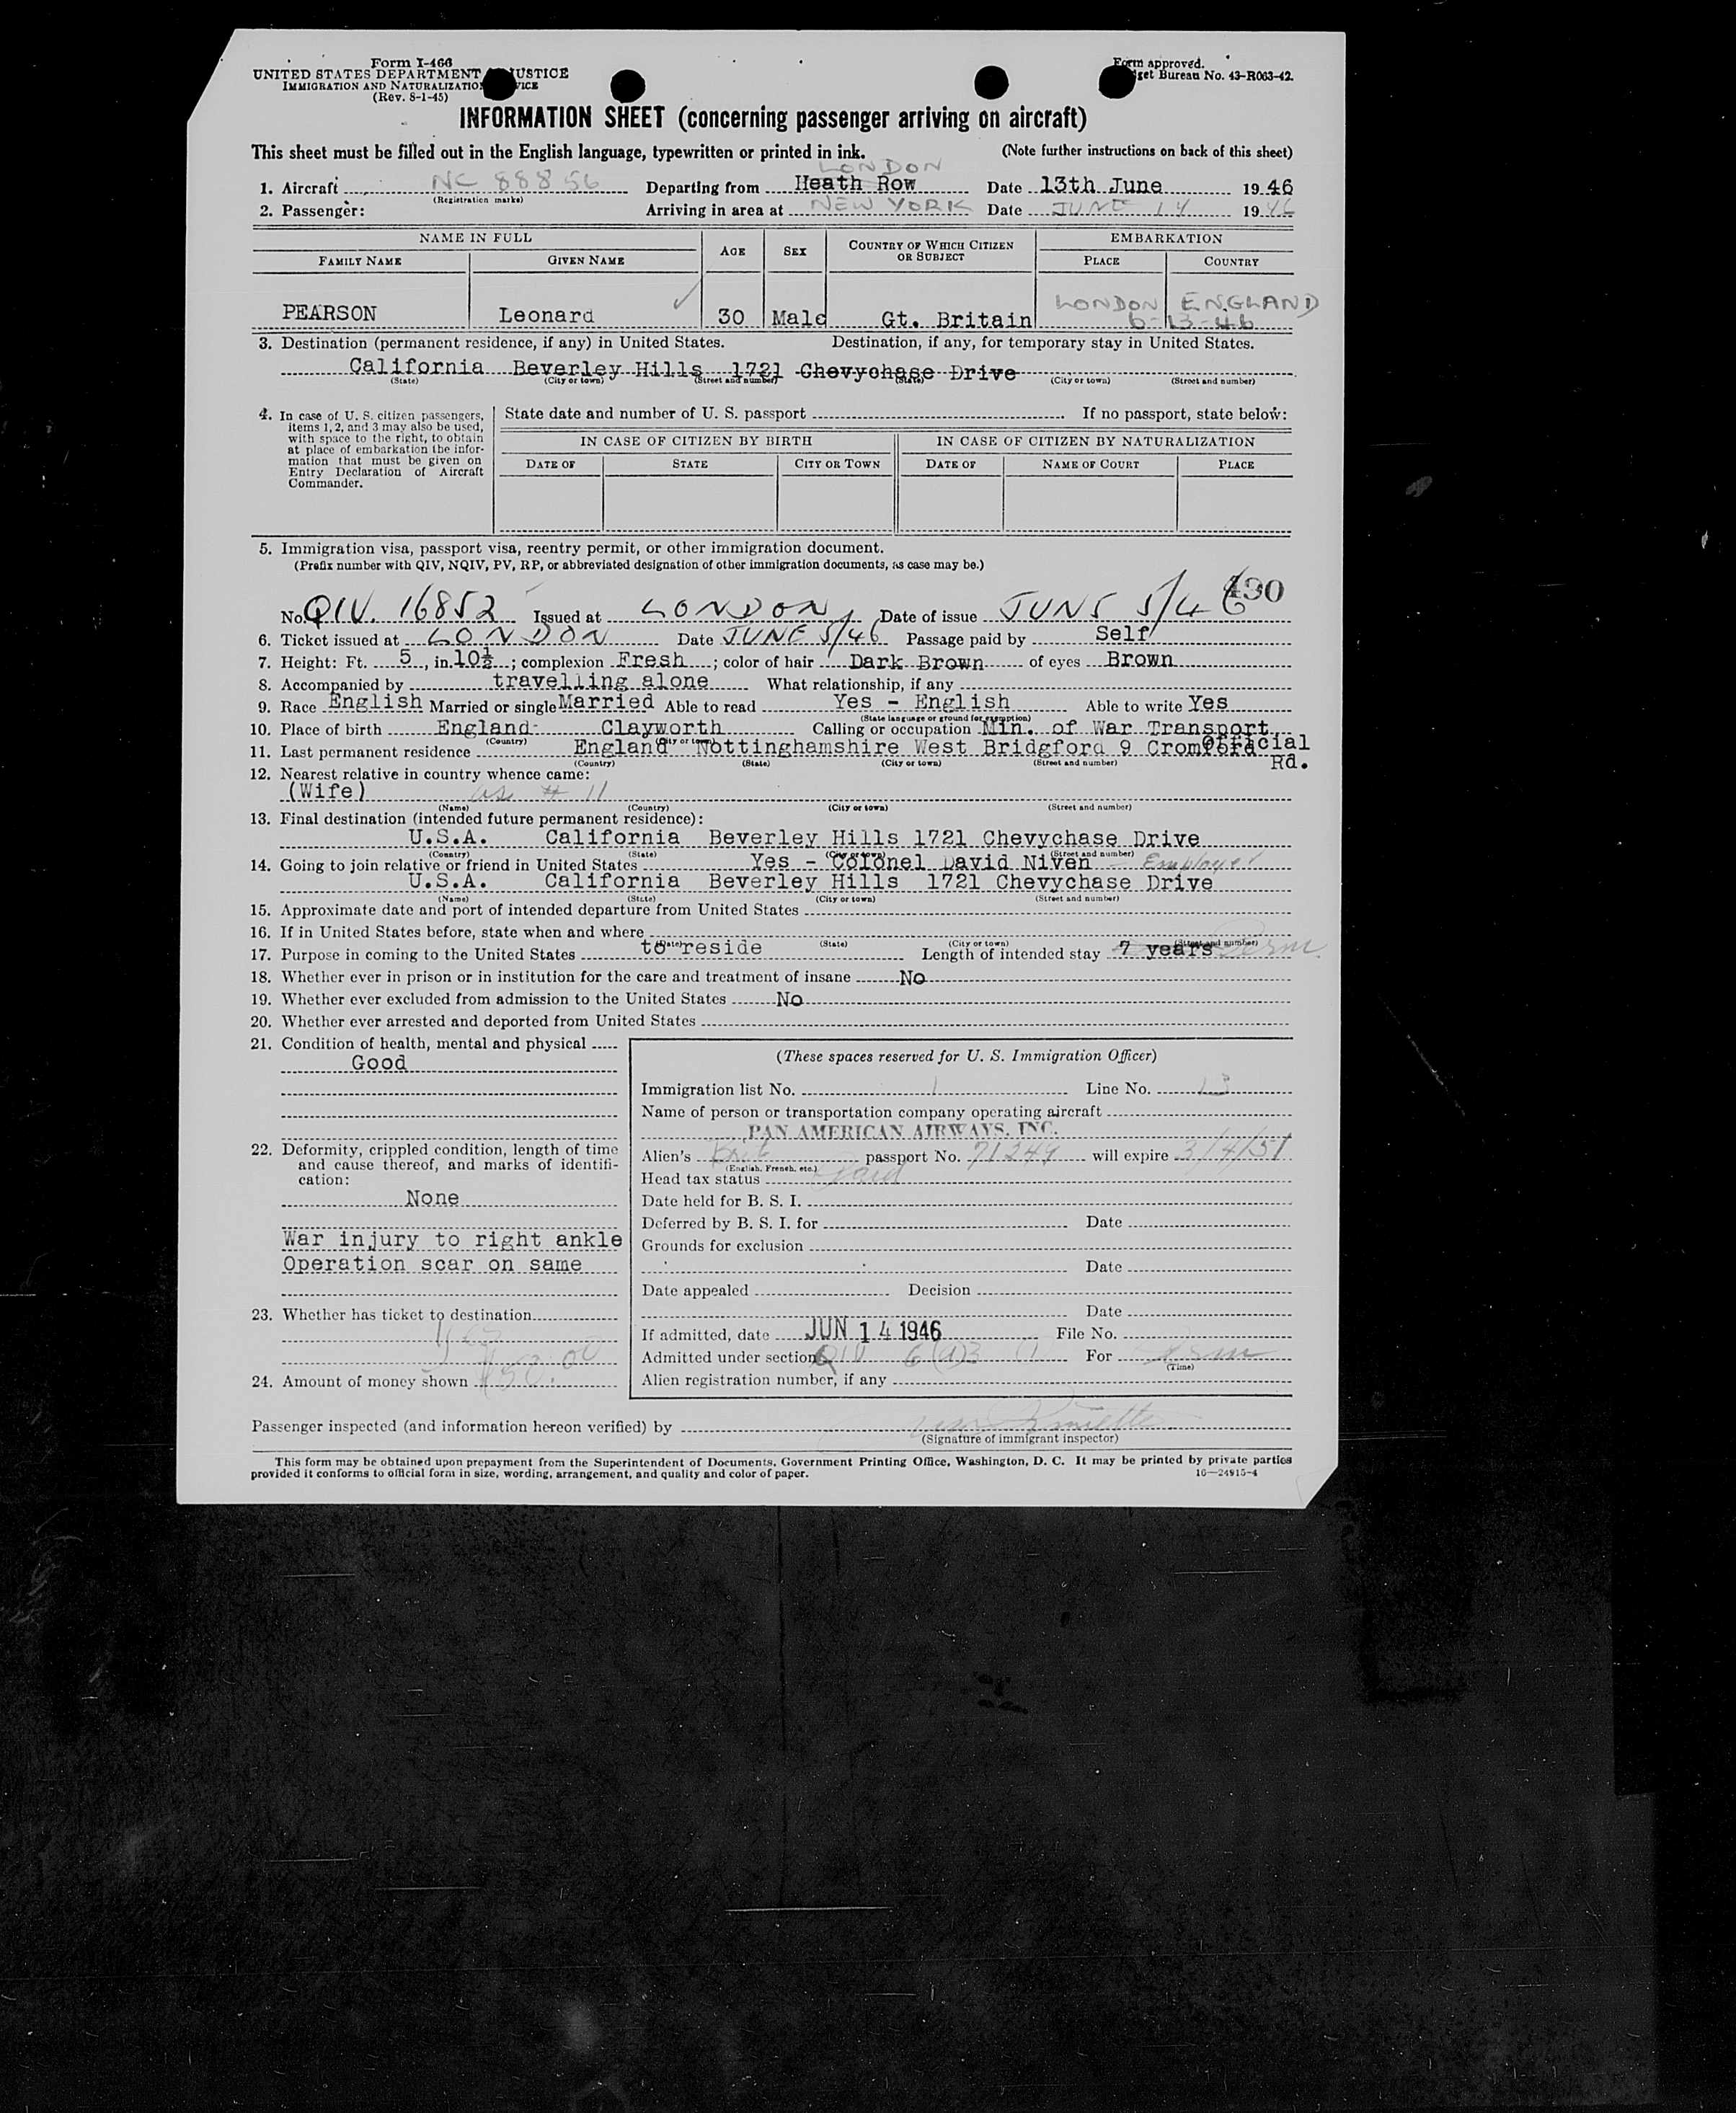 Form I-466
UNITED STATES DEPARTMENT JUSTICE
IMMIGRATION AND NATURALIZATION
(Rev. 8-1-45)
Form approved.
Bureau No. 43-R063-42.
INFORMATION SHEET (concerning passenger arriving on aircraft)
This sheet must be filled out in the English language, typewritten or printed in ink. (Note further instructions on back of this sheet)
LONDON
1. Aircraft NC 88856 Departing from Heath Row Date 13th June 1946
(Registration marks)
2. Passenger: Arriving in area at NEW YORK Date JUNE 14 1946
NAME IN FULL AGE SEX COUNTRY OF WHICH CITIZEN OR SUBJECT EMBARKATION
FAMILY NAME GIVEN NAME PLACE COUNTRY
LONDON ENGLAND
PEARSON Leonard 30 Male Gt. Britain 6-13-46
3. Destination (permanent residence, if any) in United States. Destination, if any, for temporary stay in United States.
California Beverley Hills 1721 Chevychase Drive
(State) (City or town) (Street and number) (State) (City or town) (Street and number)
4. In case of U. S. citizen passengers, items 1, 2, and 3 may also be used, with space to the right, to obtain at place of embarkation the information that must be given on Entry Declaration of Aircraft Commander.
State date and number of U. S. passport If no passport, state below:
IN CASE OF CITIZEN BY BIRTH IN CASE OF CITIZEN BY NATURALIZATION
DATE OF STATE CITY OR TOWN DATE OF NAME OF COURT PLACE
5. Immigration visa, passport visa, reentry permit, or other immigration document.
(Prefix number with QIV, NQIV, PV, RP, or abbreviated designation of other immigration documents, as case may be.)
490
No. QIV. 16852 Issued at LONDON Date of issue JUNE 5/46
6. Ticket issued at LONDON Date JUNE 5/46 Passage paid by Self
7. Height: Ft. 5, in. 10½; complexion Fresh; color of hair Dark Brown of eyes Brown
8. Accompanied by travelling alone What relationship, if any
9. Race English Married or single Married Able to read Yes - English Able to write Yes
(State language or ground for exemption)
10. Place of birth England- Clayworth Calling or occupation Min. of War Transport Official
(Country) (City or town)
11. Last permanent residence England Nottinghamshire West Bridgford 9 Cromford Rd.
(Country) (State) (City or town) (Street and number)
12. Nearest relative in country whence came:
(Wife) as # 11
(Name) (Country) (City or town) (Street and number)
13. Final destination (intended future permanent residence):
U.S.A. California Beverley Hills 1721 Chevychase Drive
(Country) (State) (City or town) (Street and number)
14. Going to join relative or friend in United States Yes - Colonel David Niven - Employer
U.S.A. California Beverley Hills 1721 Chevychase Drive
(Name) (State) (City or town) (Street and number)
15. Approximate date and port of intended departure from United States
16. If in United States before, state when and where
(Date) (State) (City or town) (Street and number)
17. Purpose in coming to the United States to reside Length of intended stay 7 years Perm.
18. Whether ever in prison or in institution for the care and treatment of insane No
19. Whether ever excluded from admission to the United States No
20. Whether ever arrested and deported from United States
21. Condition of health, mental and physical
Good
22. Deformity, crippled condition, length of time and cause thereof, and marks of identification:
None
War injury to right ankle
Operation scar on same
23. Whether has ticket to destination
yes
24. Amount of money shown
(These spaces reserved for U. S. Immigration Officer)
Immigration list No. 1 Line No. 13
Name of person or transportation company operating aircraft
PAN AMERICAN AIRWAYS, INC.
Alien's Brit passport No. 71249 will expire 3/4/51
(English, French, etc.)
Head tax status Paid
Date held for B. S. I.
Deferred by B. S. I. for Date
Grounds for exclusion
Date
Date appealed Decision
Date
If admitted, date JUN 14 1946 File No.
Admitted under section QIV 6(a)3 (1) For Perm
(Time)
Alien registration number, if any
Passenger inspected (and information hereon verified) by
(Signature of immigrant inspector)
This form may be obtained upon prepayment from the Superintendent of Documents, Government Printing Office, Washington, D. C. It may be printed by private parties
provided it conforms to official form in size, wording, arrangement, and quality and color of paper. 16—24915-4